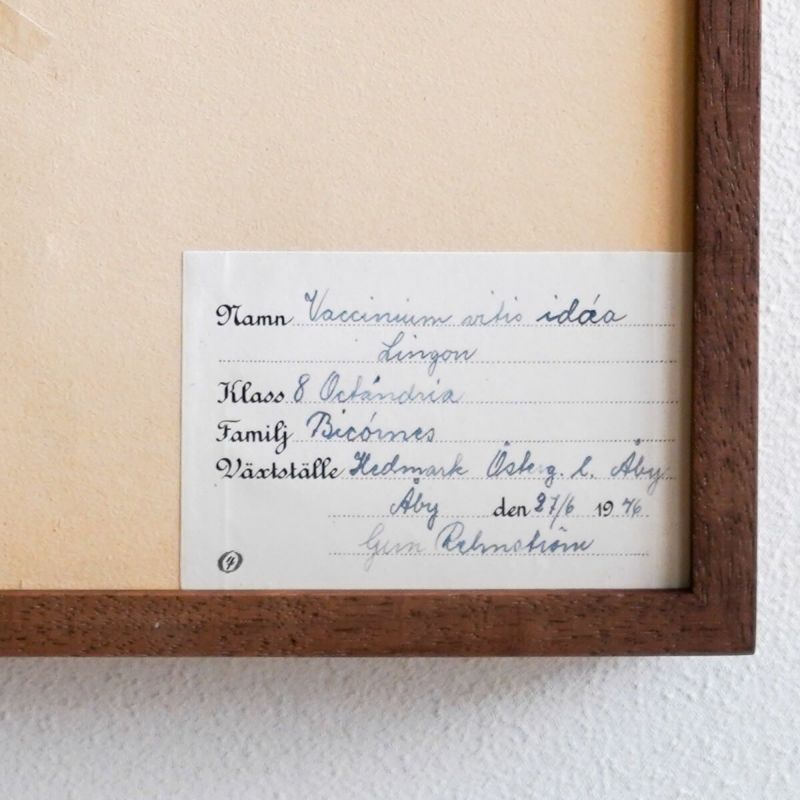 Namn Vaccinium vitis idáa
Lingon
Klass 8 Octándria
Familj Bicórnes
Växtställe Hedmark Österg. l. Åby
Åby den 27/6 1946
Gun
4